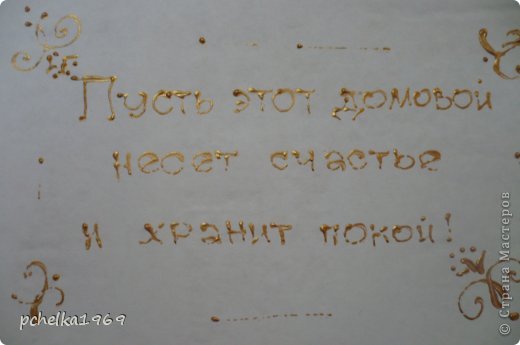 Пусть этот домовой
несет счастье
и хранит покой!
pchelka1969
© Страна Мастеров